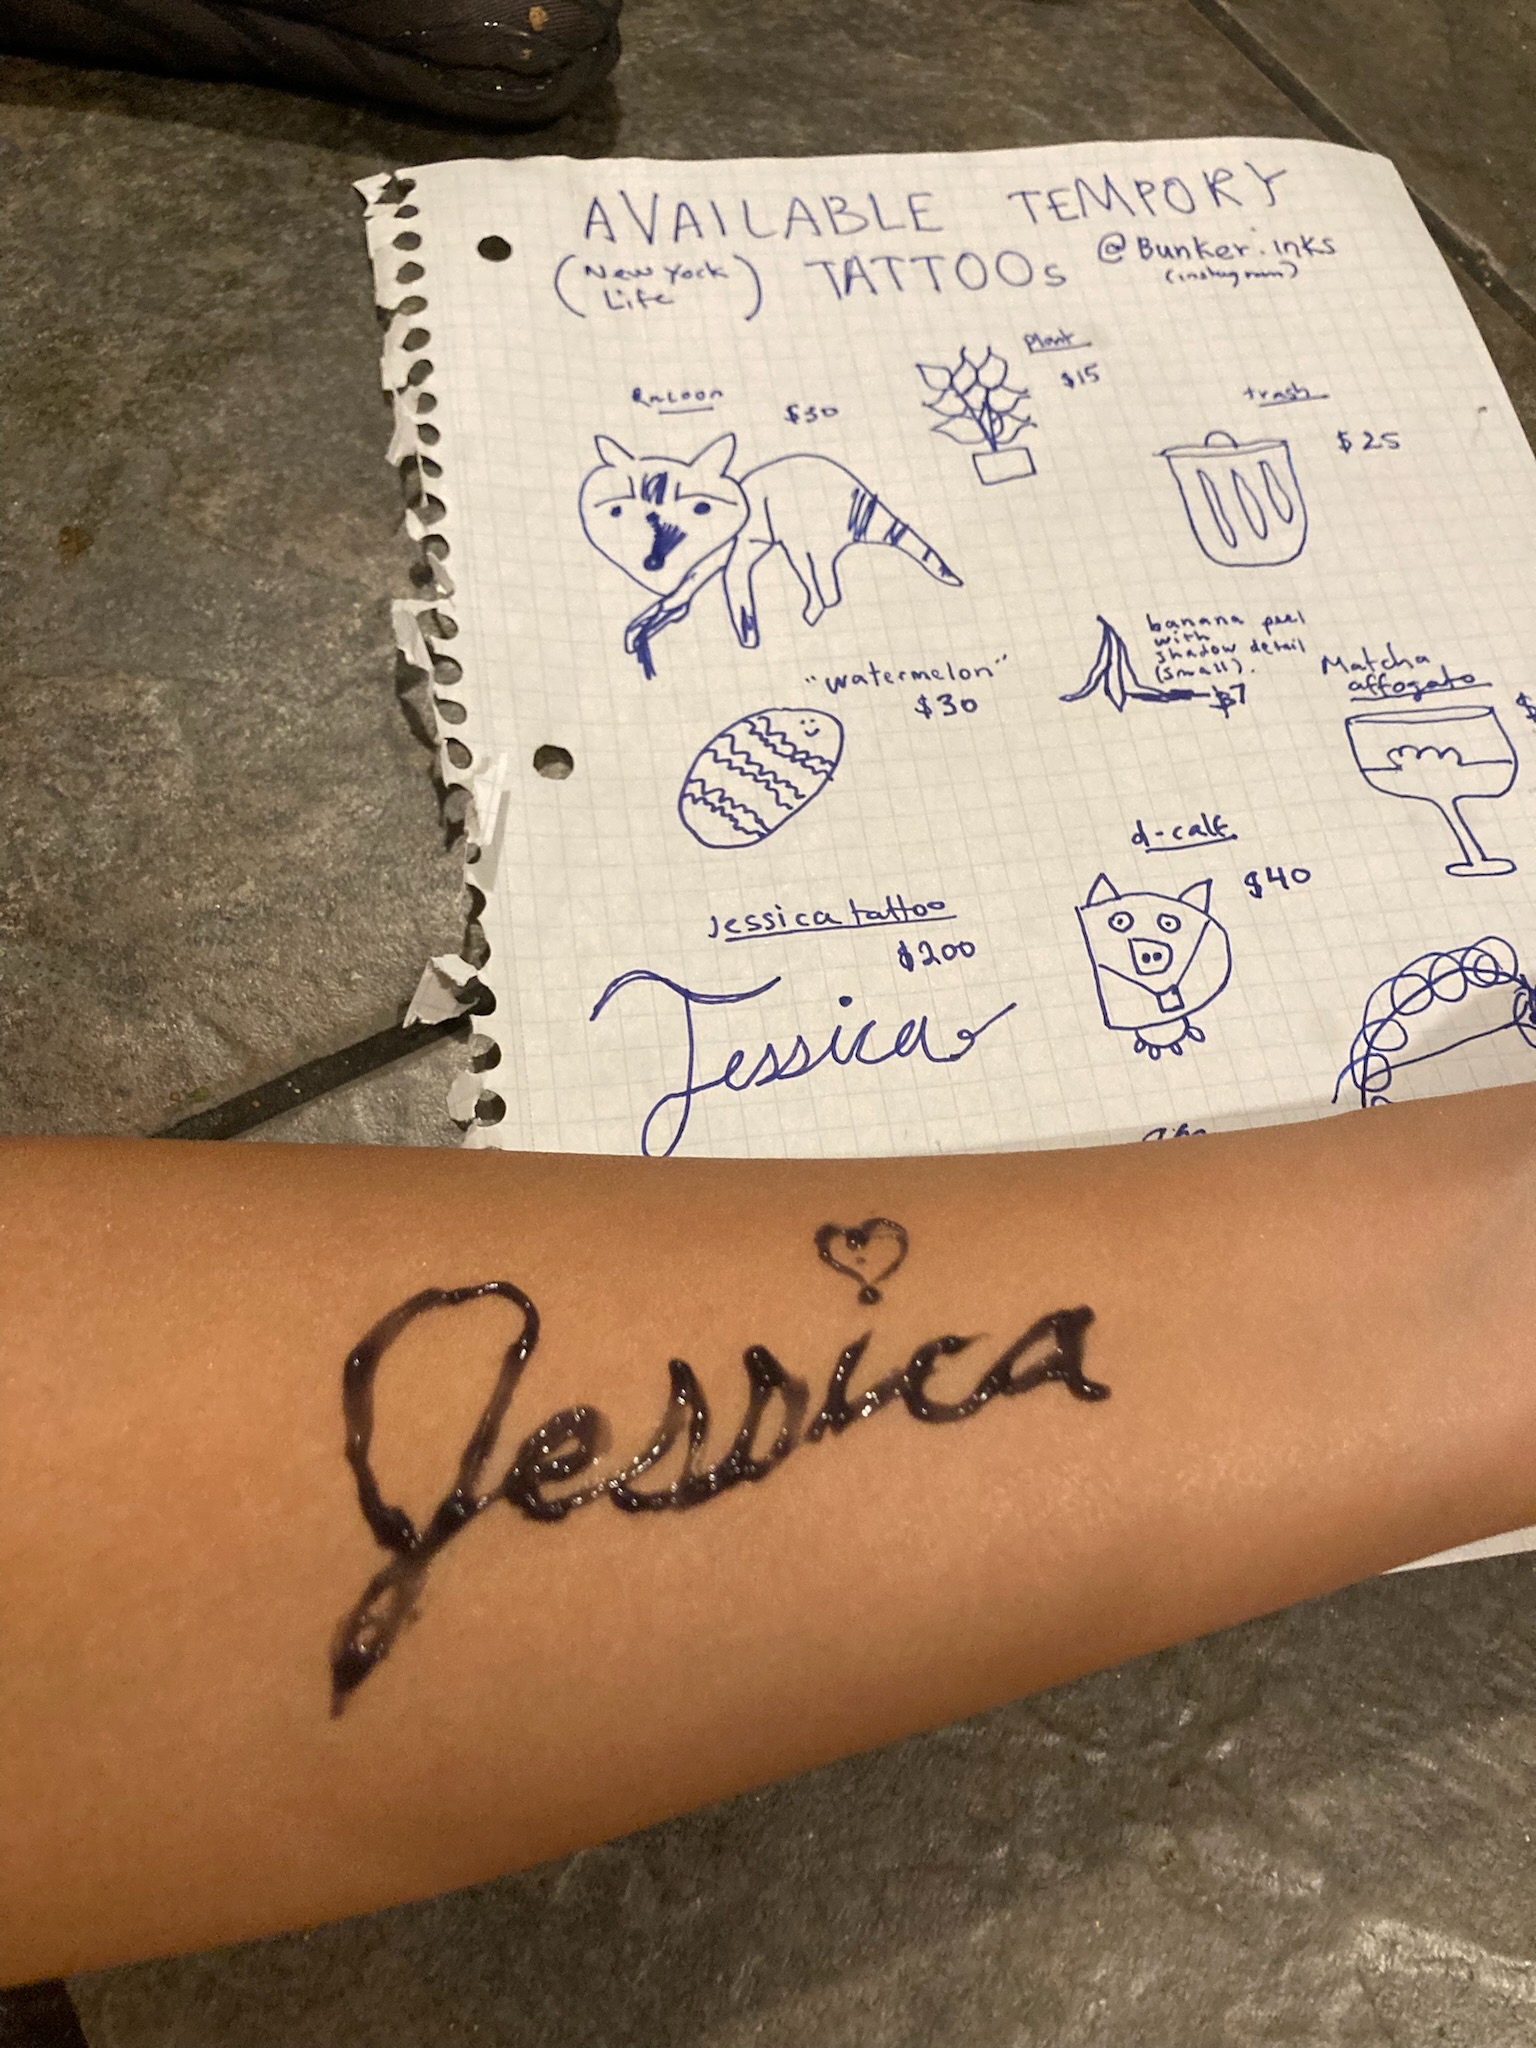 AVAILABLE TEMPORY
(New York Life) TATTOOs @Bunker.inks
(instagram)
Plant
$15
Racoon
$30
trash
$25
"watermelon"
$30
banana peel
with
shadow detail
(small).
$7
Matcha
affogato
$
d-calf
$40
Jessica tattoo
$200
Jessica
Jessica